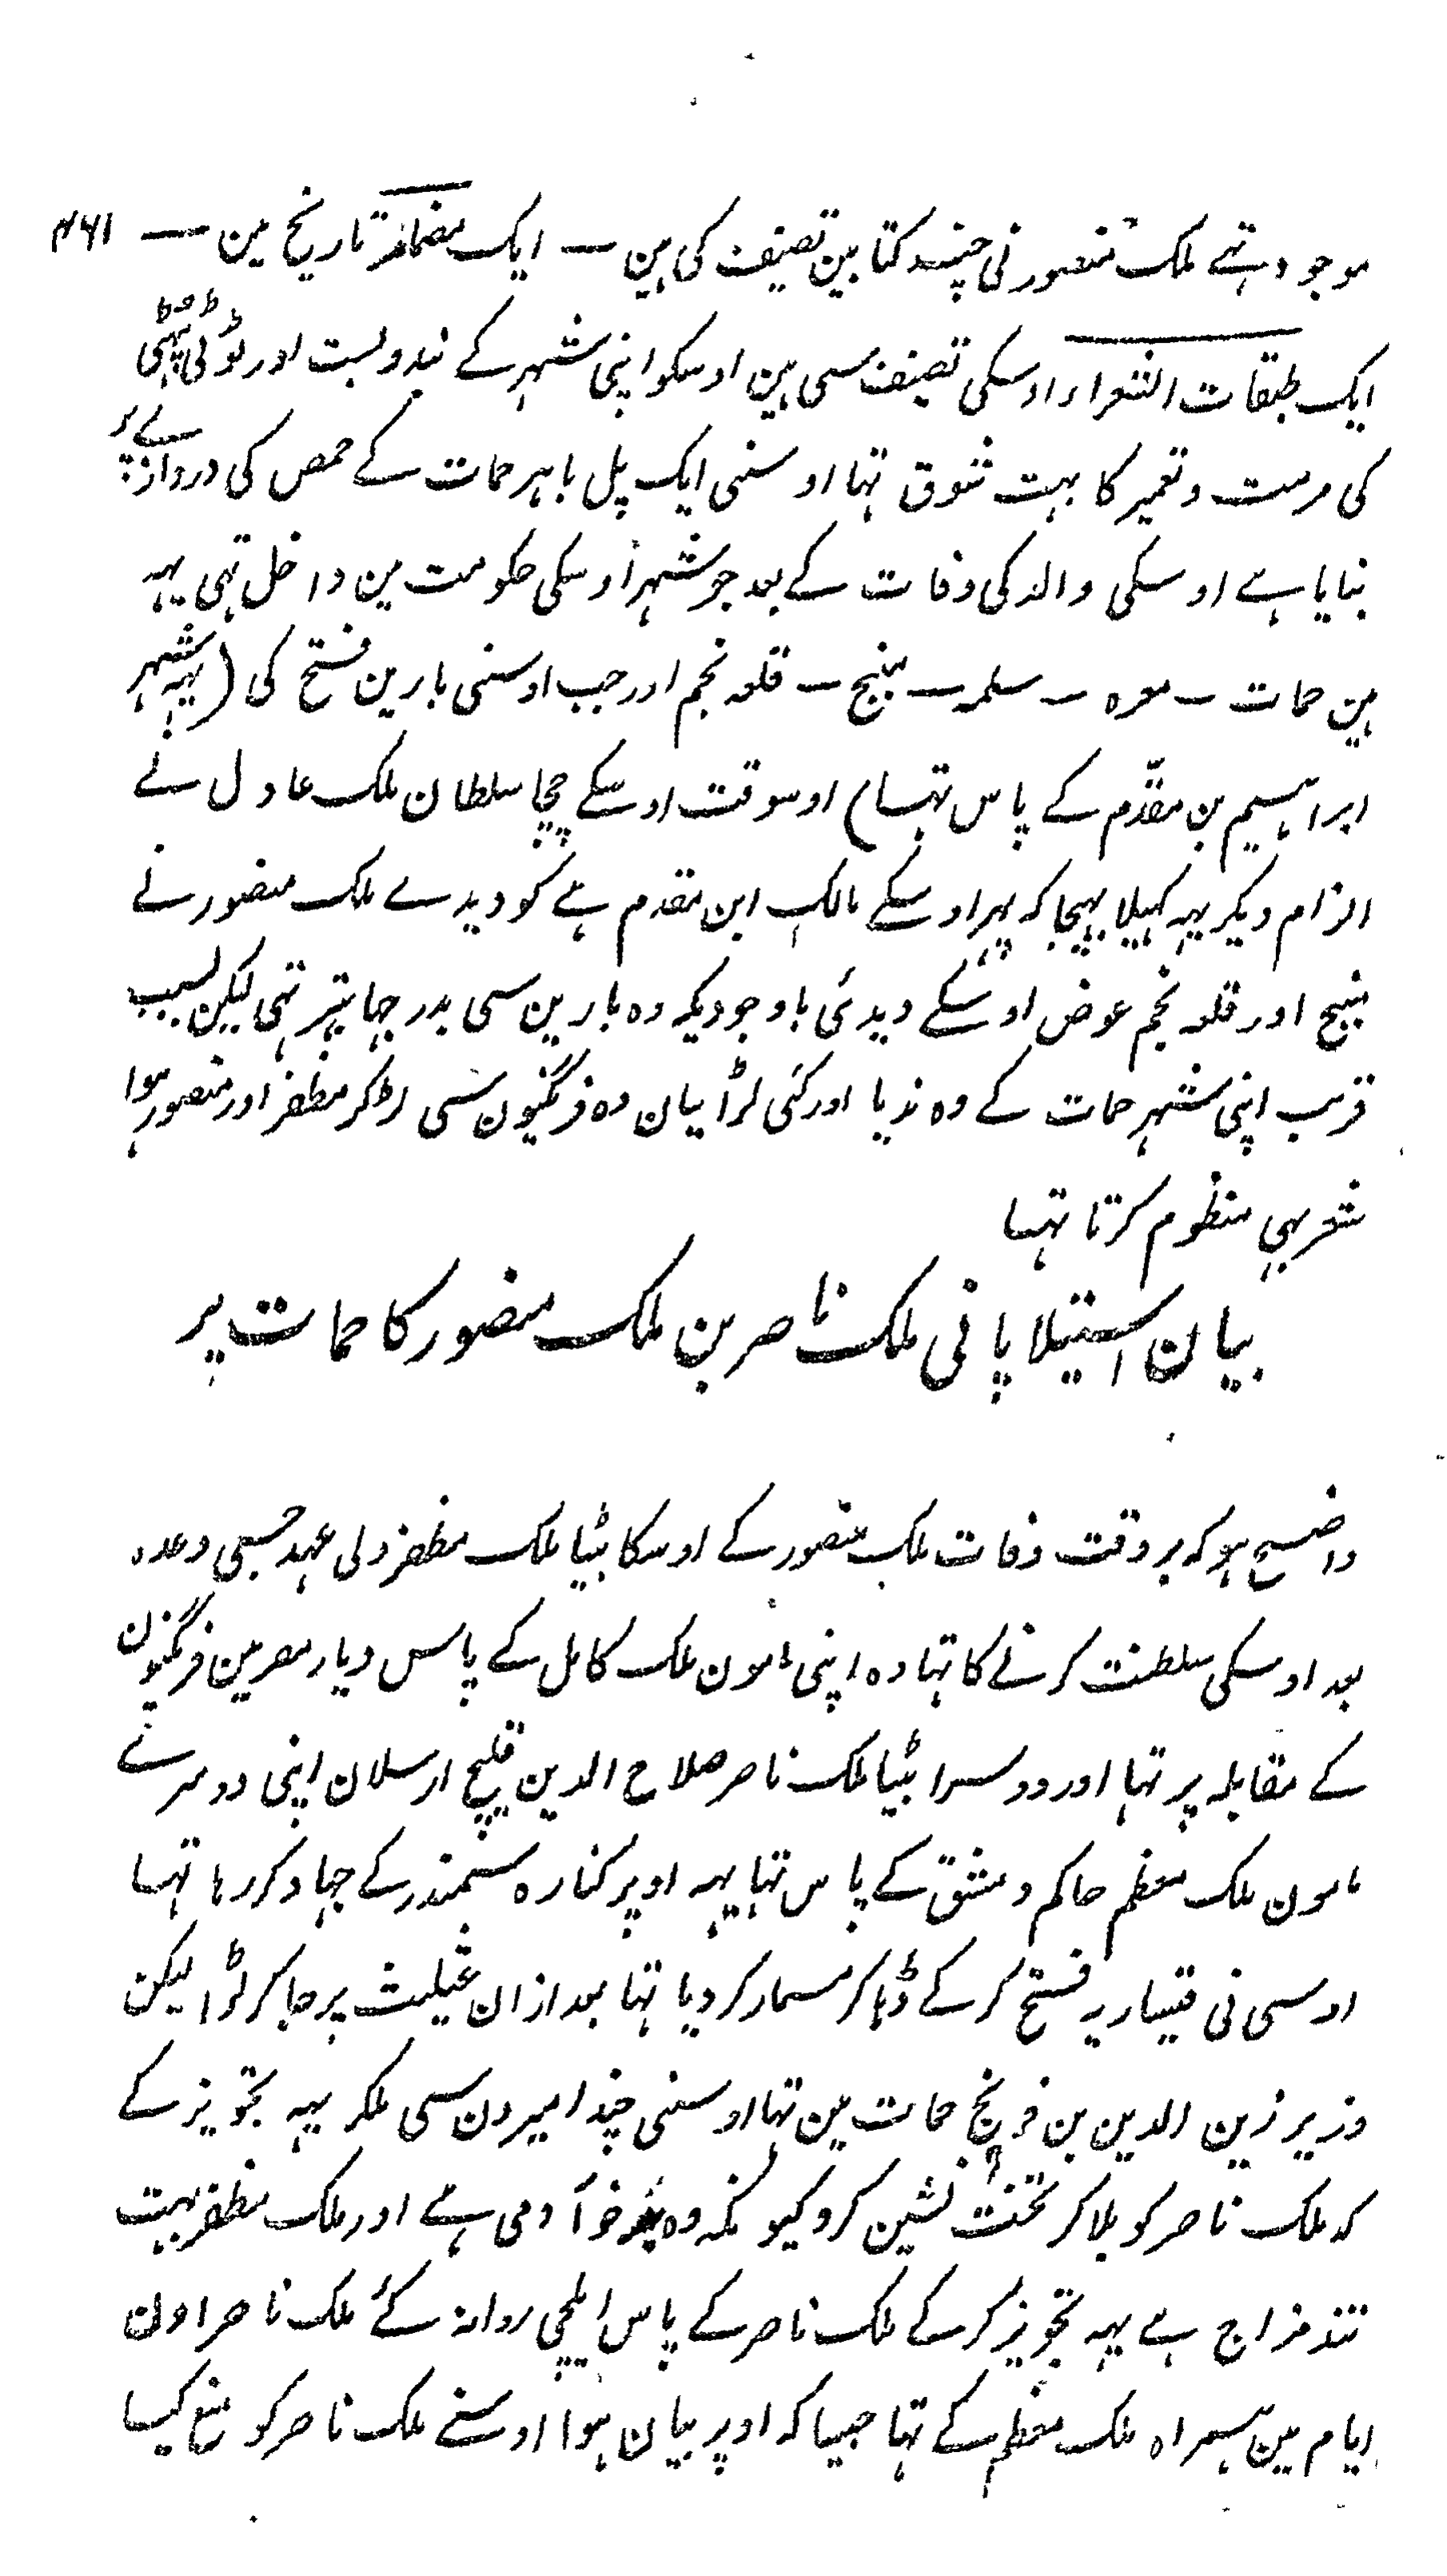 موجود تہے ملک منصور نی چند کتابین تصنیف کی ہین — ایک مضمار تاریخ مین — ۴۶۱
ایک طبقات الشعراء اوسکی تصنیف سی ہین اوسکو اپنی شہر کے بندوبست اور ٹوٹی پہٹی
کی مرمت و تعمیر کا بہت شوق تہا اوسنی ایک پل باہر حمات کے حمص کی دروازے پر
بنایا ہے اوسکی والد کی وفات کے بعد جو شہر اوسکی حکومت مین داخل تہی یہہ
ہین حمات — معرہ — سلمیہ — منبج — قلعہ نجم اور جب اوسنی بارین فتح کی (یہہ شہر
ابراہیم بن مقدّم کے پاس تہا) اوسوقت اوسکے چچا سلطان ملک عادل نے
الزام دیکر یہہ کہیلا بہیجا کہ پہر اوسکے مالک ابن مقدم ہے کو دیدے ملک منصور نے
منبج اور قلعہ نجم عوض اوسکے دیدئی باوجودیکہ وہ بارین سی بدرجہا بہتر تہی لیکن بسبب
قرب اپنی شہر حمات کے وہ ندیا اور کئی لڑائیان وہ فرنگیون سی لڑکر مظفر اور منصور ہوا
شعر بہی منظوم کرتا تہا
بیان استیلا پانی ملک ناصر بن ملک منصور کا حمات پر
واضح ہو کہ بر وقت وفات ملک منصور کے اوسکا بیٹا ملک مظفر ولی عہد جسی وعدہ
بعد اوسکی سلطنت کرنے کا تہا وہ اپنی مامون ملک کامل کے پاس دیار مصر مین فرنگیون
کے مقابلہ پر تہا اور دوسرا بیٹا ملک ناصر صلاح الدین قلیج ارسلان اپنی دوسرے
مامون ملک معظم حاکم دمشق کے پاس تہا یہہ اوپر کنارہ سمندر کے جہاد کر رہا تہا
اوسی نی قیساریہ فتح کر کے ڈہا کر مسمار کر دیا تہا بعد ازان عثلیث پر جا کر لڑا لیکن
وزیر زین الدین بن فریج حمات مین تہا اوسنی چند امیرون سی ملکر یہہ تجویز کے
کہ ملک ناصر کو بلا کر تخت نشین کرو کیونکہ وہ آدمی ہے اور ملک مظفر بہت
تند مزاج ہے یہہ تجویز کر کے ملک ناصر کے پاس ایلچی روانہ کئے ملک ناصر اون
ایام مین ہمراہ ملک معظم کے تہا جیسا کہ اوپر بیان ہوا اوسنے ملک ناصر کو منع کیا